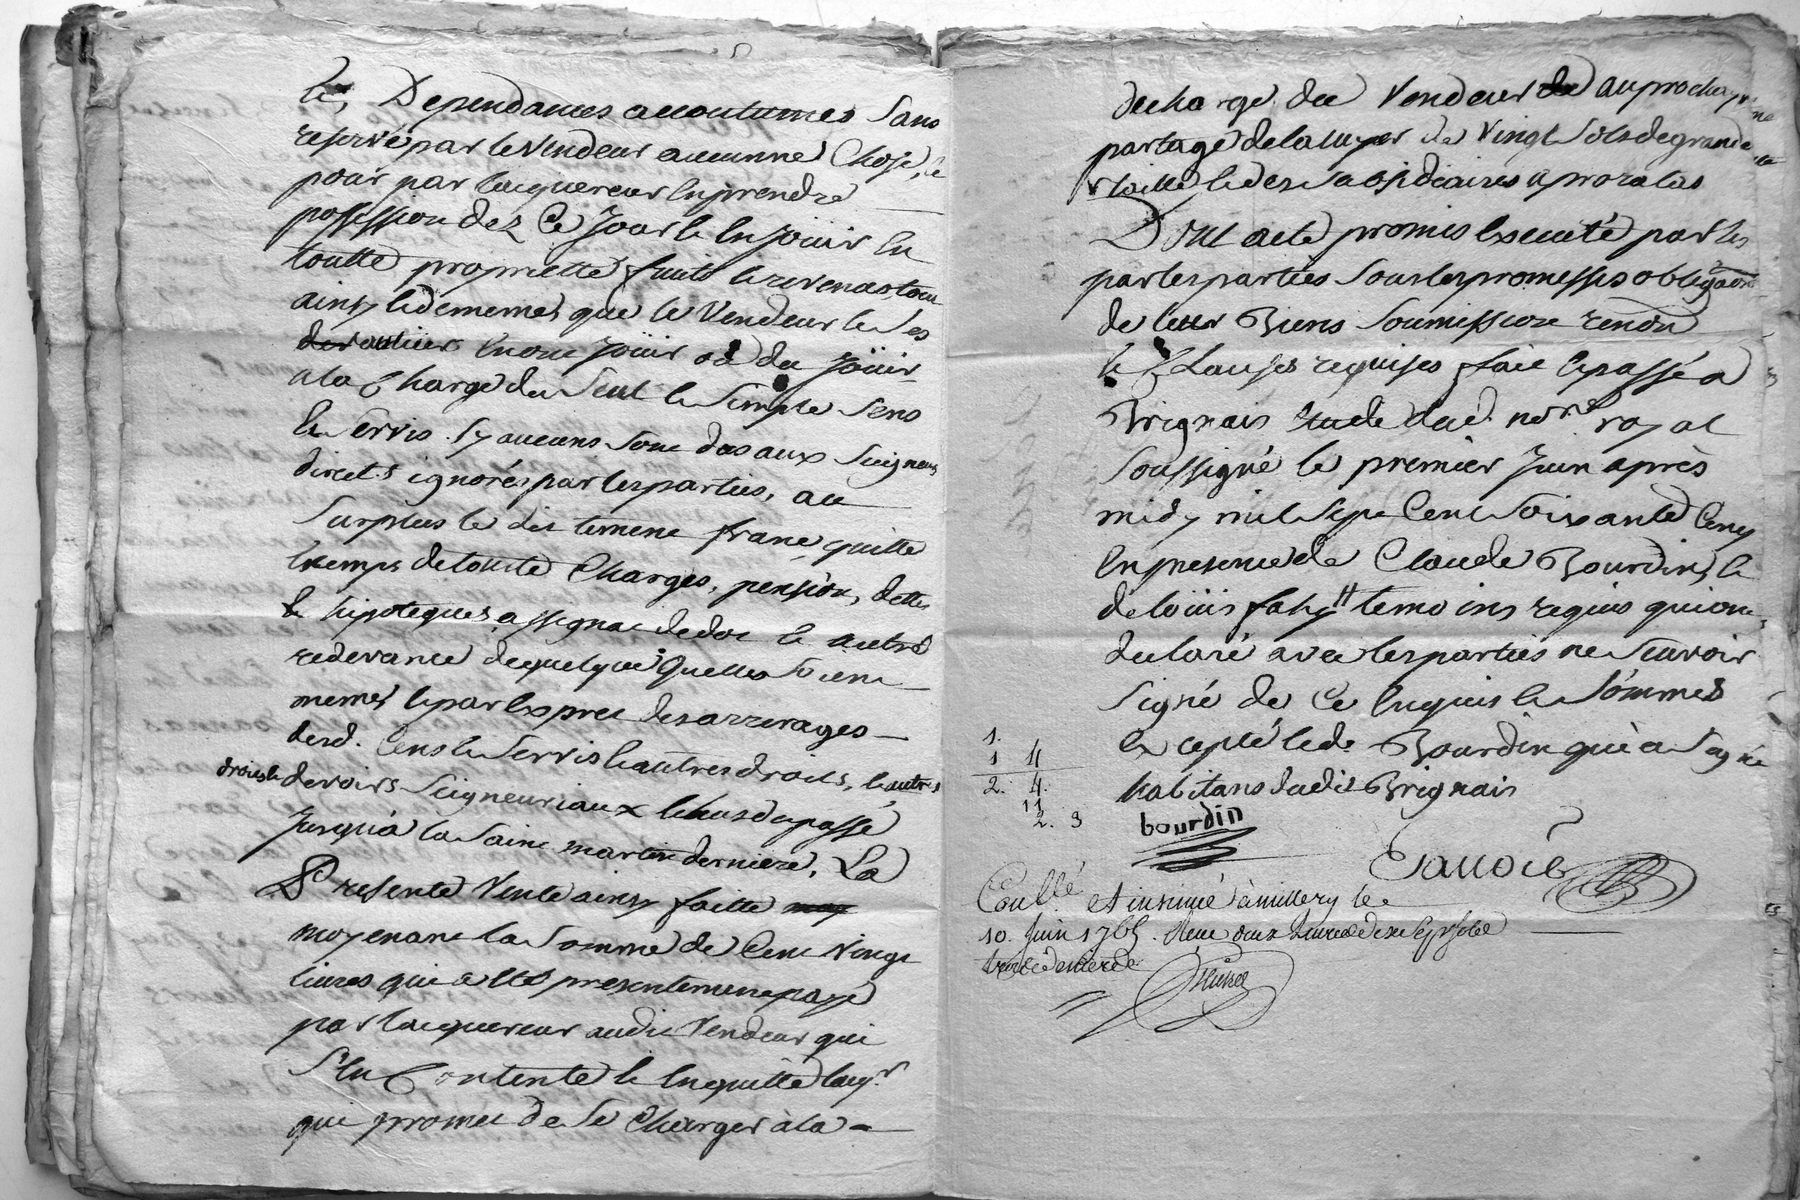 et Dependances accoutumés Sans
reserve par le Vendeur aucunne Chose, et
pour par lacquereur En prendre
possession dez Ce Jour et En Jouir En
toutte propriette fruits et revenus tou
ainsy et de memes que le Vendeur et Ses
En ont Joüir ou du Joüir
a la Charge du Seul et Simple Sens
et Servis Sy aucuns Sont dus aux Seigneurs
directs ignorés par les parties, au
Surplus le dit tement franc, quitte
Exemps de toutte Charges, pension, dettes
et hipoteques, assignat de dot et autre
redevance de quelque quelles Soient
memes et par Expret des arrerages
desd. Cens et Servis et autres droits, et autres
droits et devoirs Seigneuriaux Echus du passé
Jusqu'a la Saint martin derniere, La
Presente Vente ainsy faitte
moyenant la Somme de Cent Vingt
livres qui a été presentement payé
par lacquereur audit Vendeur qui
S'En Contente et En quitte lacqr
qui promet de Se Charger à la
decharge du Vendeur au prochain
partage de la luy de Vingt Sols de grande
taille et des Subsidiaires a proratas
Dont acte promis Executé par les
par les parties Sous les promesses obligaons
de leur Biens Soumission renon
et Clauses requises fait et passé a
Brignais Etude dud. nore royal
Soussigné le premier Juin après
midy mil Sept Cent Soixante Cinq
En presence de Claude Bourdin, et
de loüis fahy temoins requis qui ont
declaré avec les parties ne Scavoir
Signé de Ce Enquis et Sommés
Excepté led. Bourdin qui a Signé
habitans dudit Brignais
1.
1 4
2. 4.
11
2. 3
bourdin
Conllé et insinué à millery le
10. Juin 1765. Reçu deux livres